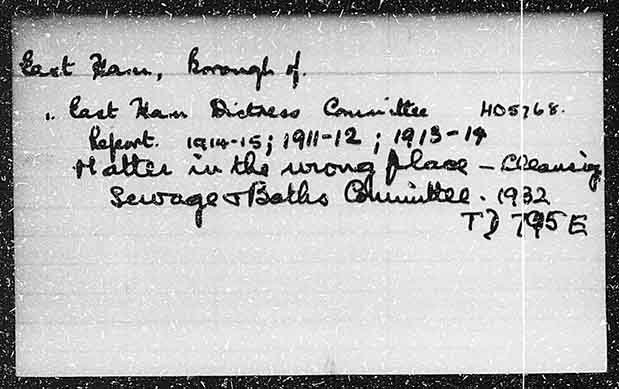 East Ham, Borough of.
1. East Ham Distress Committee HD5768.
Report. 1914-15; 1911-12; 1913-14
Matter in the wrong place - Cleansing
Sewage & Baths Committee. 1932
TD 795 E